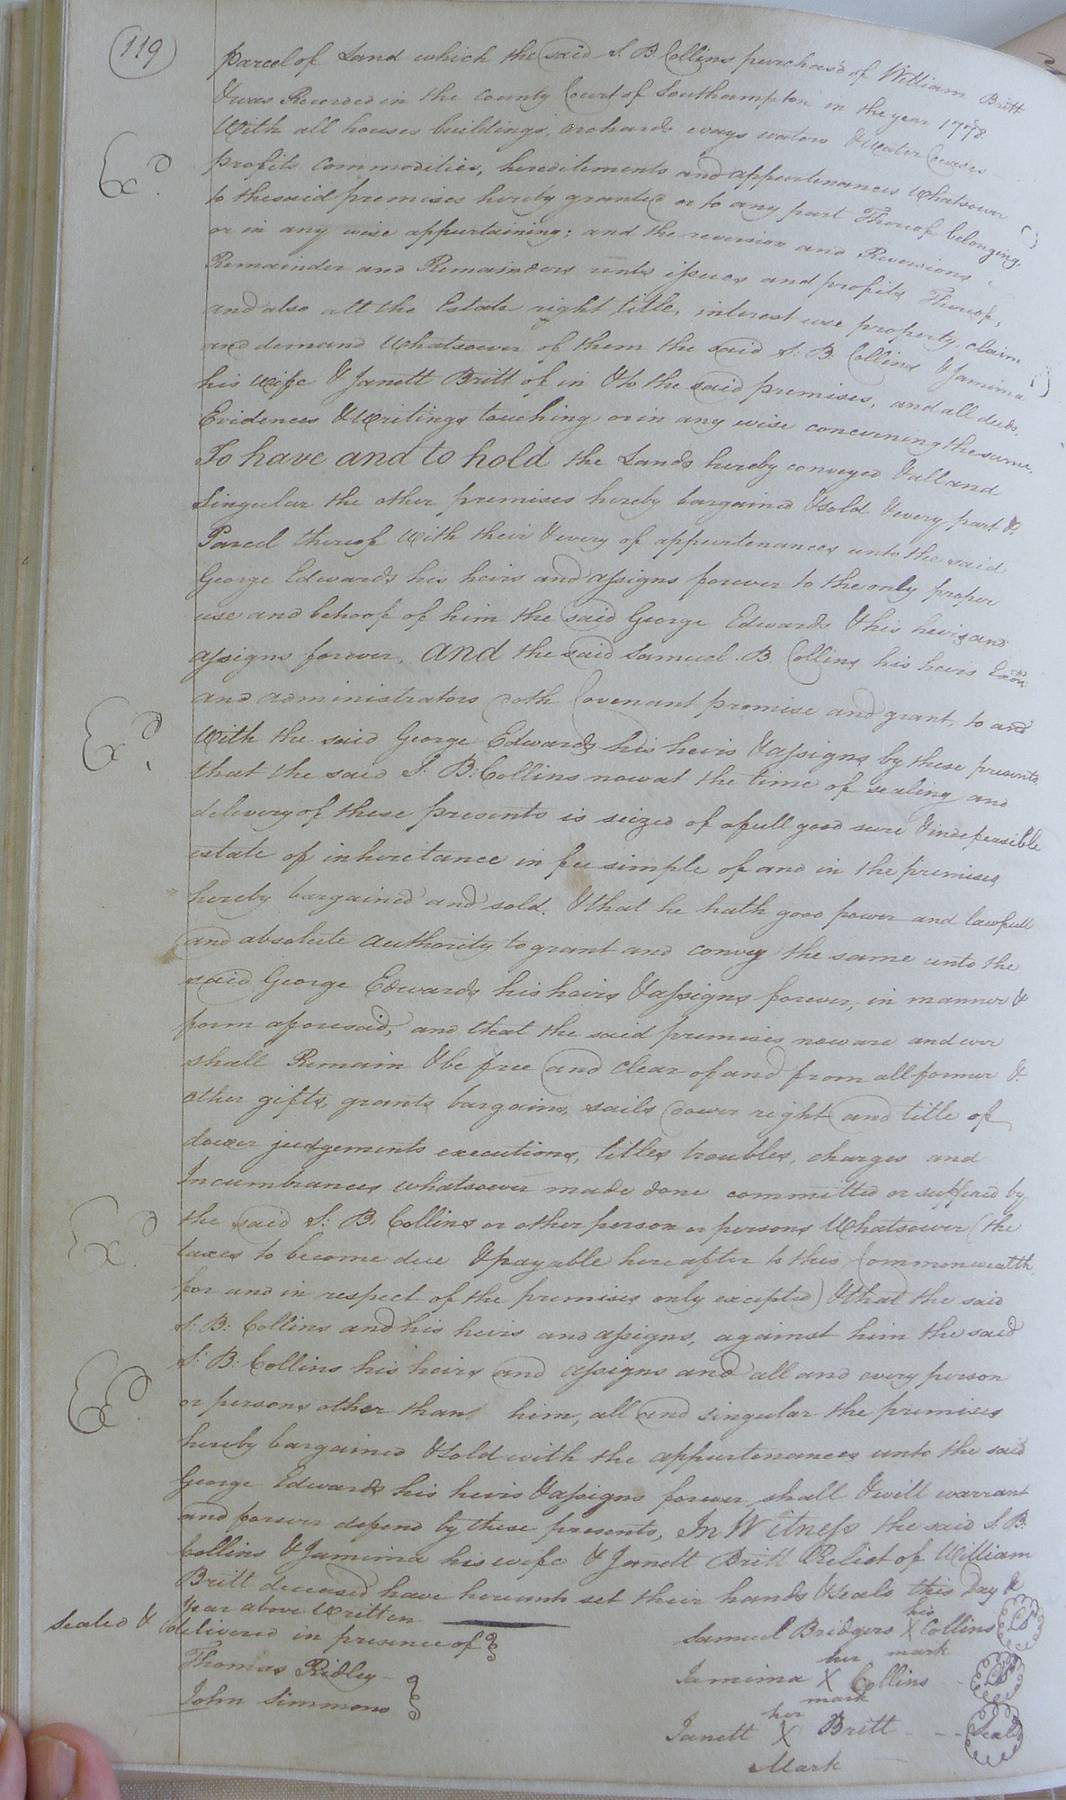 119
parcel of Land which the said S. B Collins purchas'd of William Britt
& was Recorded in the County Court of Southampton in the year 1778
With all houses buildings, orchards ways waters & Water Courses
profits commodities, hereditements and appurtenances Whatsoever
to the said premises hereby granted or to any part Thereof belonging,
or in any wise appurtaining; and the reversion and Reversions
Remainder and Remainders rents issues and profits Thereof,
and also all the Estate right title, interest use property, claim
and demand Whatsoever of them the said S. B. Collins & Jamima
his Wife & Janett Britt of in & to the said premises, and all deeds,
Evidences & Writings touching or in any wise concerning the same,
To have and to hold the Lands hereby conveyed & all and
Singular the other premises hereby bargained & sold & every part &
Parcel thereof With their & every of appurtenances unto the said
George Edwards his heirs and assigns forever to the only proper
use and behoof of him the said George Edwards & his heirs and
assigns forever, and the said Samuel. B. Collins his heirs Exors
and administrators doth Covenant promise and grant, to and
With the said George Edwards his heirs & assigns by these presents
that the said S. B. Collins now at the time of sealing and
delivery of these presents is seized of a full good sure & indefeasible
estate of inheritance in fee simple of and in the premises
hereby bargained and sold. & that he hath good power and lawfull
and absolute authority to grant and convey the same unto the
said George Edwards his heirs & assigns forever, in manner &
form aforesaid, and that the said premises now are and ever
shall Remain & be free and clear of and from all former &
other gifts, grants bargains, sails dower right and title of
dower judgements executions, titles troubles, charges and
Incumbrances whatsoever made done committed or suffered by
the said S: B. Collins or other person or persons Whatsoever (the
taxes to become due & payable here after to this Commonwealth
for and in respect of the premises only excepted) & that the said
S: B: Collins and his heirs and assigns, against him the said
S: B: Collins his heirs and assigns and all and every person
or persons other than him, all and singular the premises
hereby bargained & sold with the appurtenances unto the said
George Edwards his heirs & assigns forever shall & will warrant
and forever defend by these presents, In Witness the said S. B.
Collins & Jamima his wife & Janett Britt Relict of William
Britt deceased have hereunto set their hands & seals this day &
year above Written
Sealed & delivered in presence of
Thomas Ridley
John Simmons
his
Samuel Bridgers X Collins LS
mark
her
Jamima X Collins LS
mark
her
Janett X Britt Seal
Mark